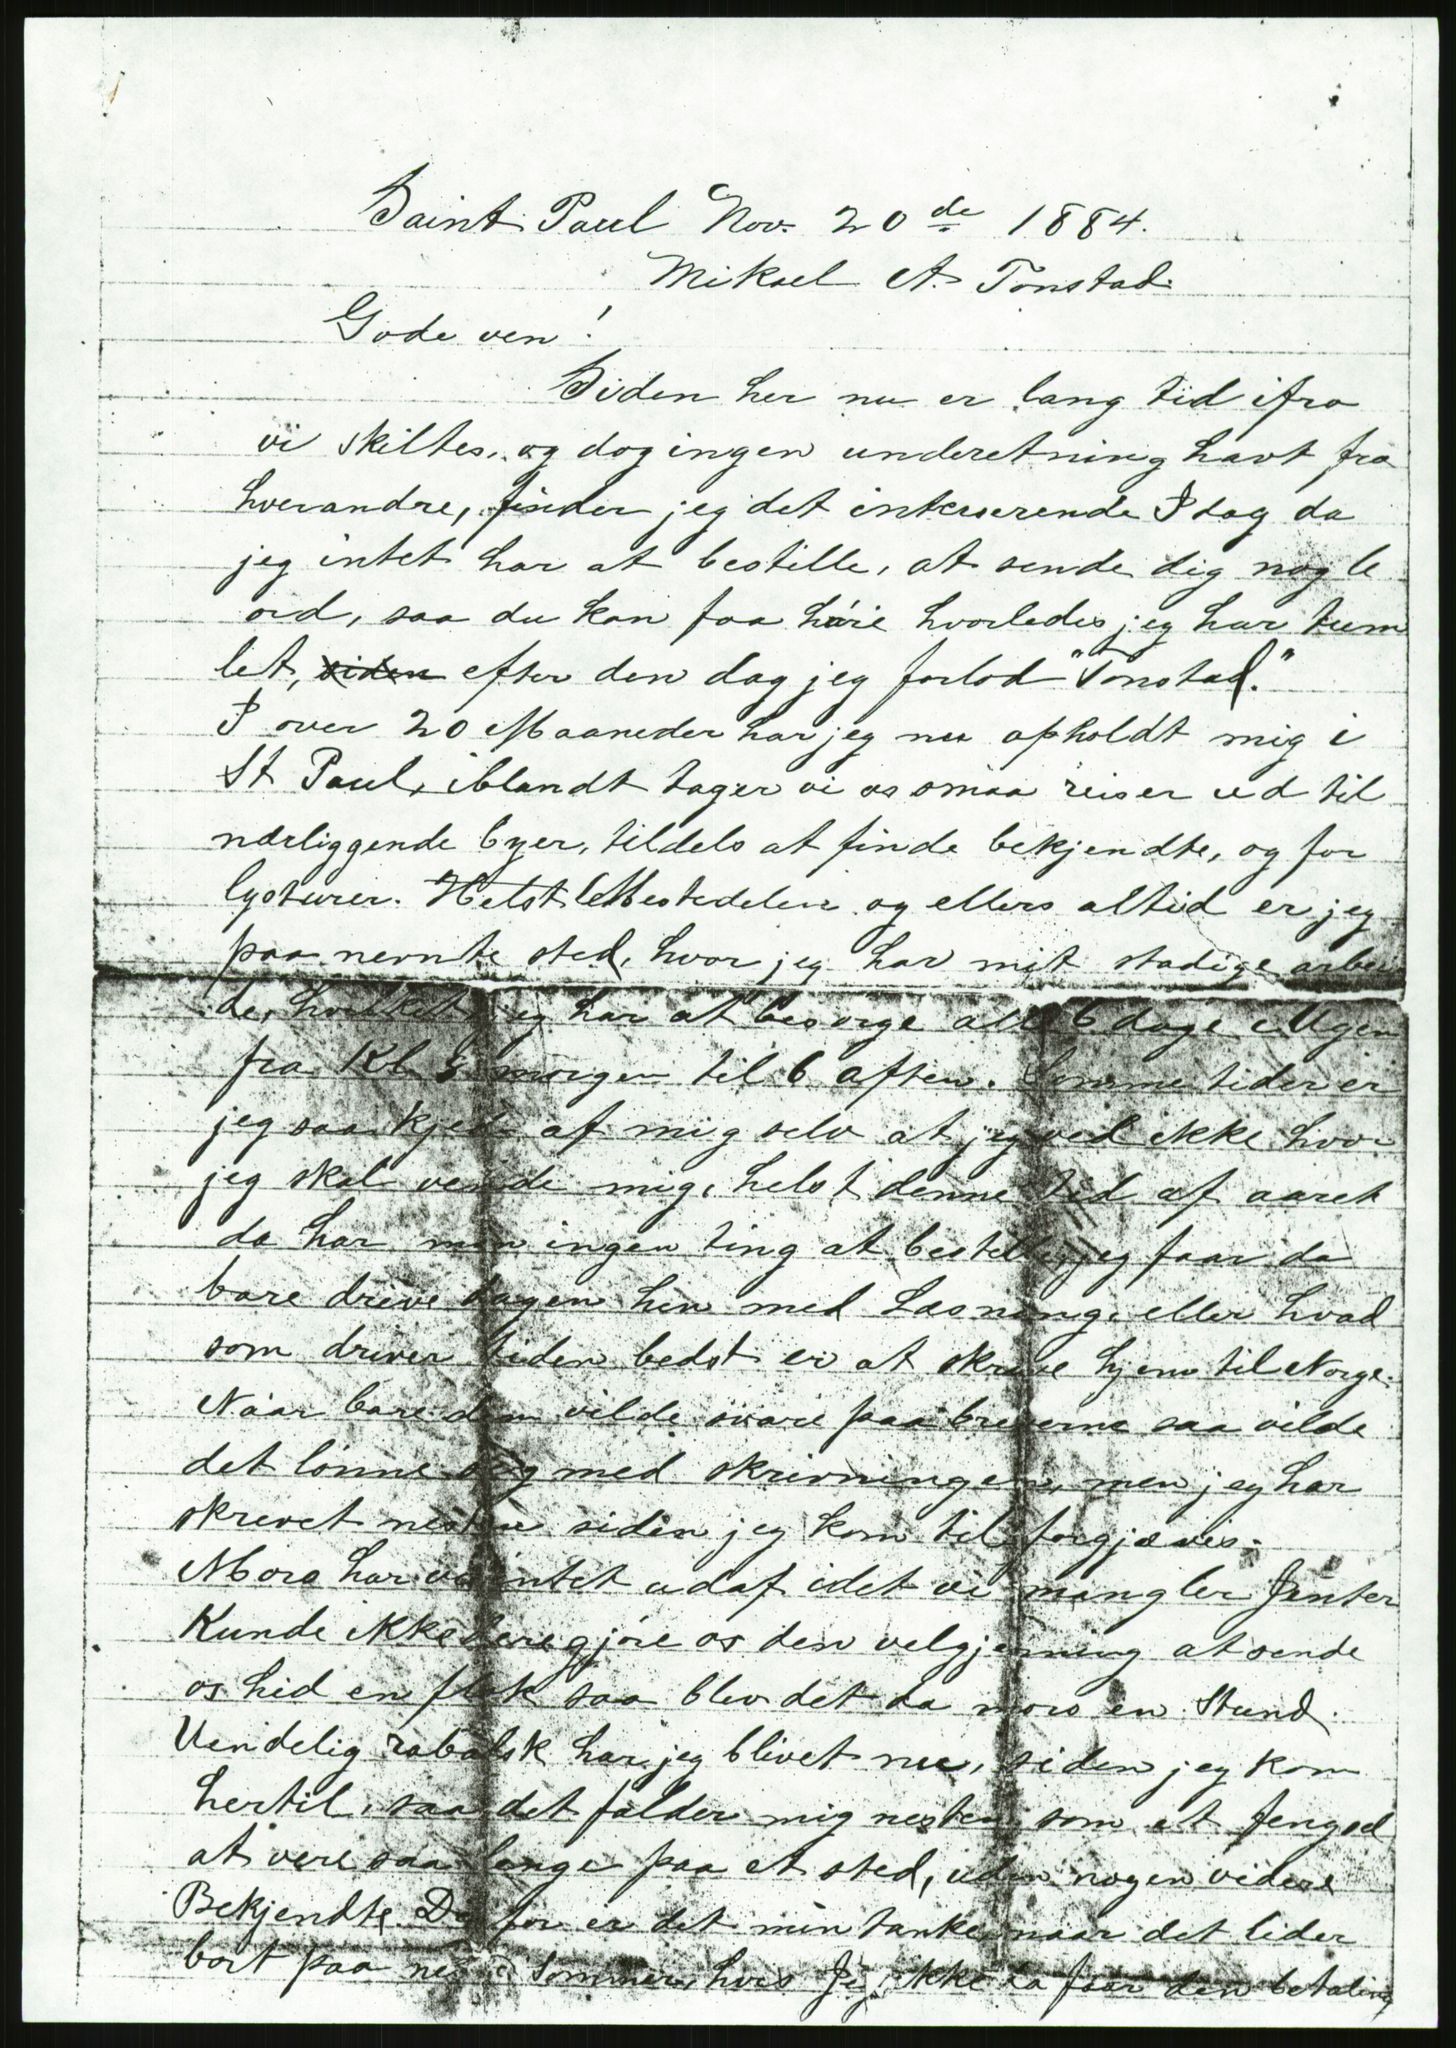 Saint Paul Nov. 20 de 1884.
Mikael A. Tonstad.
Gode ven!
Siden her nu er lang tid ifra
vi skiltes, og dog ingen underetning havt fra
hverandre, finder jeg det intereserende I dag da
jeg intet har at bestille, at sende dig nogle
ord, saa du kan faa høre hvorledes jeg har tum
let, siden efter den dag jeg forlod "Tonstad."
I over 20 Maaneder har jeg nu opholdt mig i
St Paul, iblandt tager vi os smaa reiser ud til
nærliggende byer, tildels at finde bekjendte, og for
lysturer. Helst Mestedelen og ellers altid er jeg
paa nevnte sted, hvor jeg har mit stadige arbei
de, hvilket jeg har at besørge alle 6 dage i Ugen
fra Kl morgen til 6 aften. Somme tider er
jeg saa kjed af mig selv at jeg ved ikke hvor
jeg skal vende mig, helst denne tid af aaret
da har man ingen ting at bestille, jeg faar da
bare drive dagen hen med Læsning, eller hvad
som driver tiden bedst er at skrive hjem til Norge.
Naar bare dem vilde svare paa breverne saa vilde
det lønne sig med skrivningen, men jeg har
skrevet nesten siden jeg kom til forgjæves.
Moro har vi intet udaf idet vi mangler Jenter
Kunde ikke dere gjøre os den velgjerning at sende
os hid en flok saa blev det da moro en Stund.
Uendelig rabalsk har jeg blivet nu, siden jeg kom
hertil, saa det falder mig nesten som et fengsel
at vere saa lenge paa et sted, uden nogen videre
Bekjendte. Derfor er det min tanke, naar det lider
bort paa næste Sommer, hvis Jeg ikke da faar den betaling